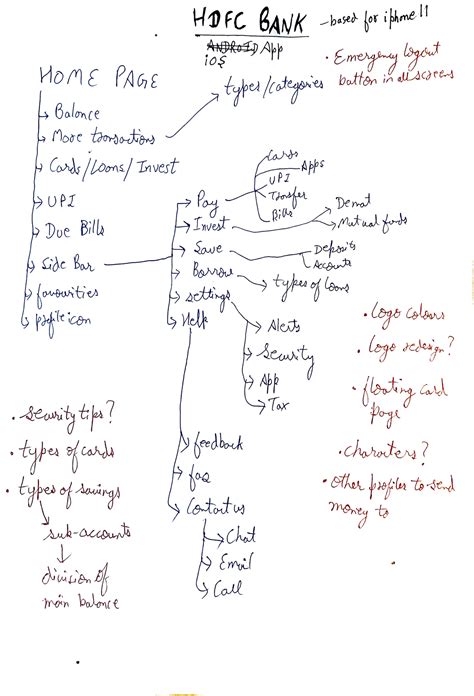 HDFC BANK - based for iphone 11
ANDROID App
iOS
• Emergency logout
button in all screens
HOME PAGE
types/categories
Balance
More transactions
Cards/Loans/Invest
UPI
Due Bills
Side Bar
favourities
profile icon
Pay
Cards
Apps
UPI
Transfer
Bills
Invest
Demat
Mutual funds
Save
Deposits
Accounts
Borrow
types of loans
settings
Alerts
Security
App
Tax
Help
feedback
faq
Contact us
Chat
Email
Call
• Logo colours
• Logo redesign?
• floating card
page
• charaters?
• other profiles to send
money to
• security tips?
• types of cards
• types of savings
sub-accounts
division of
main balance